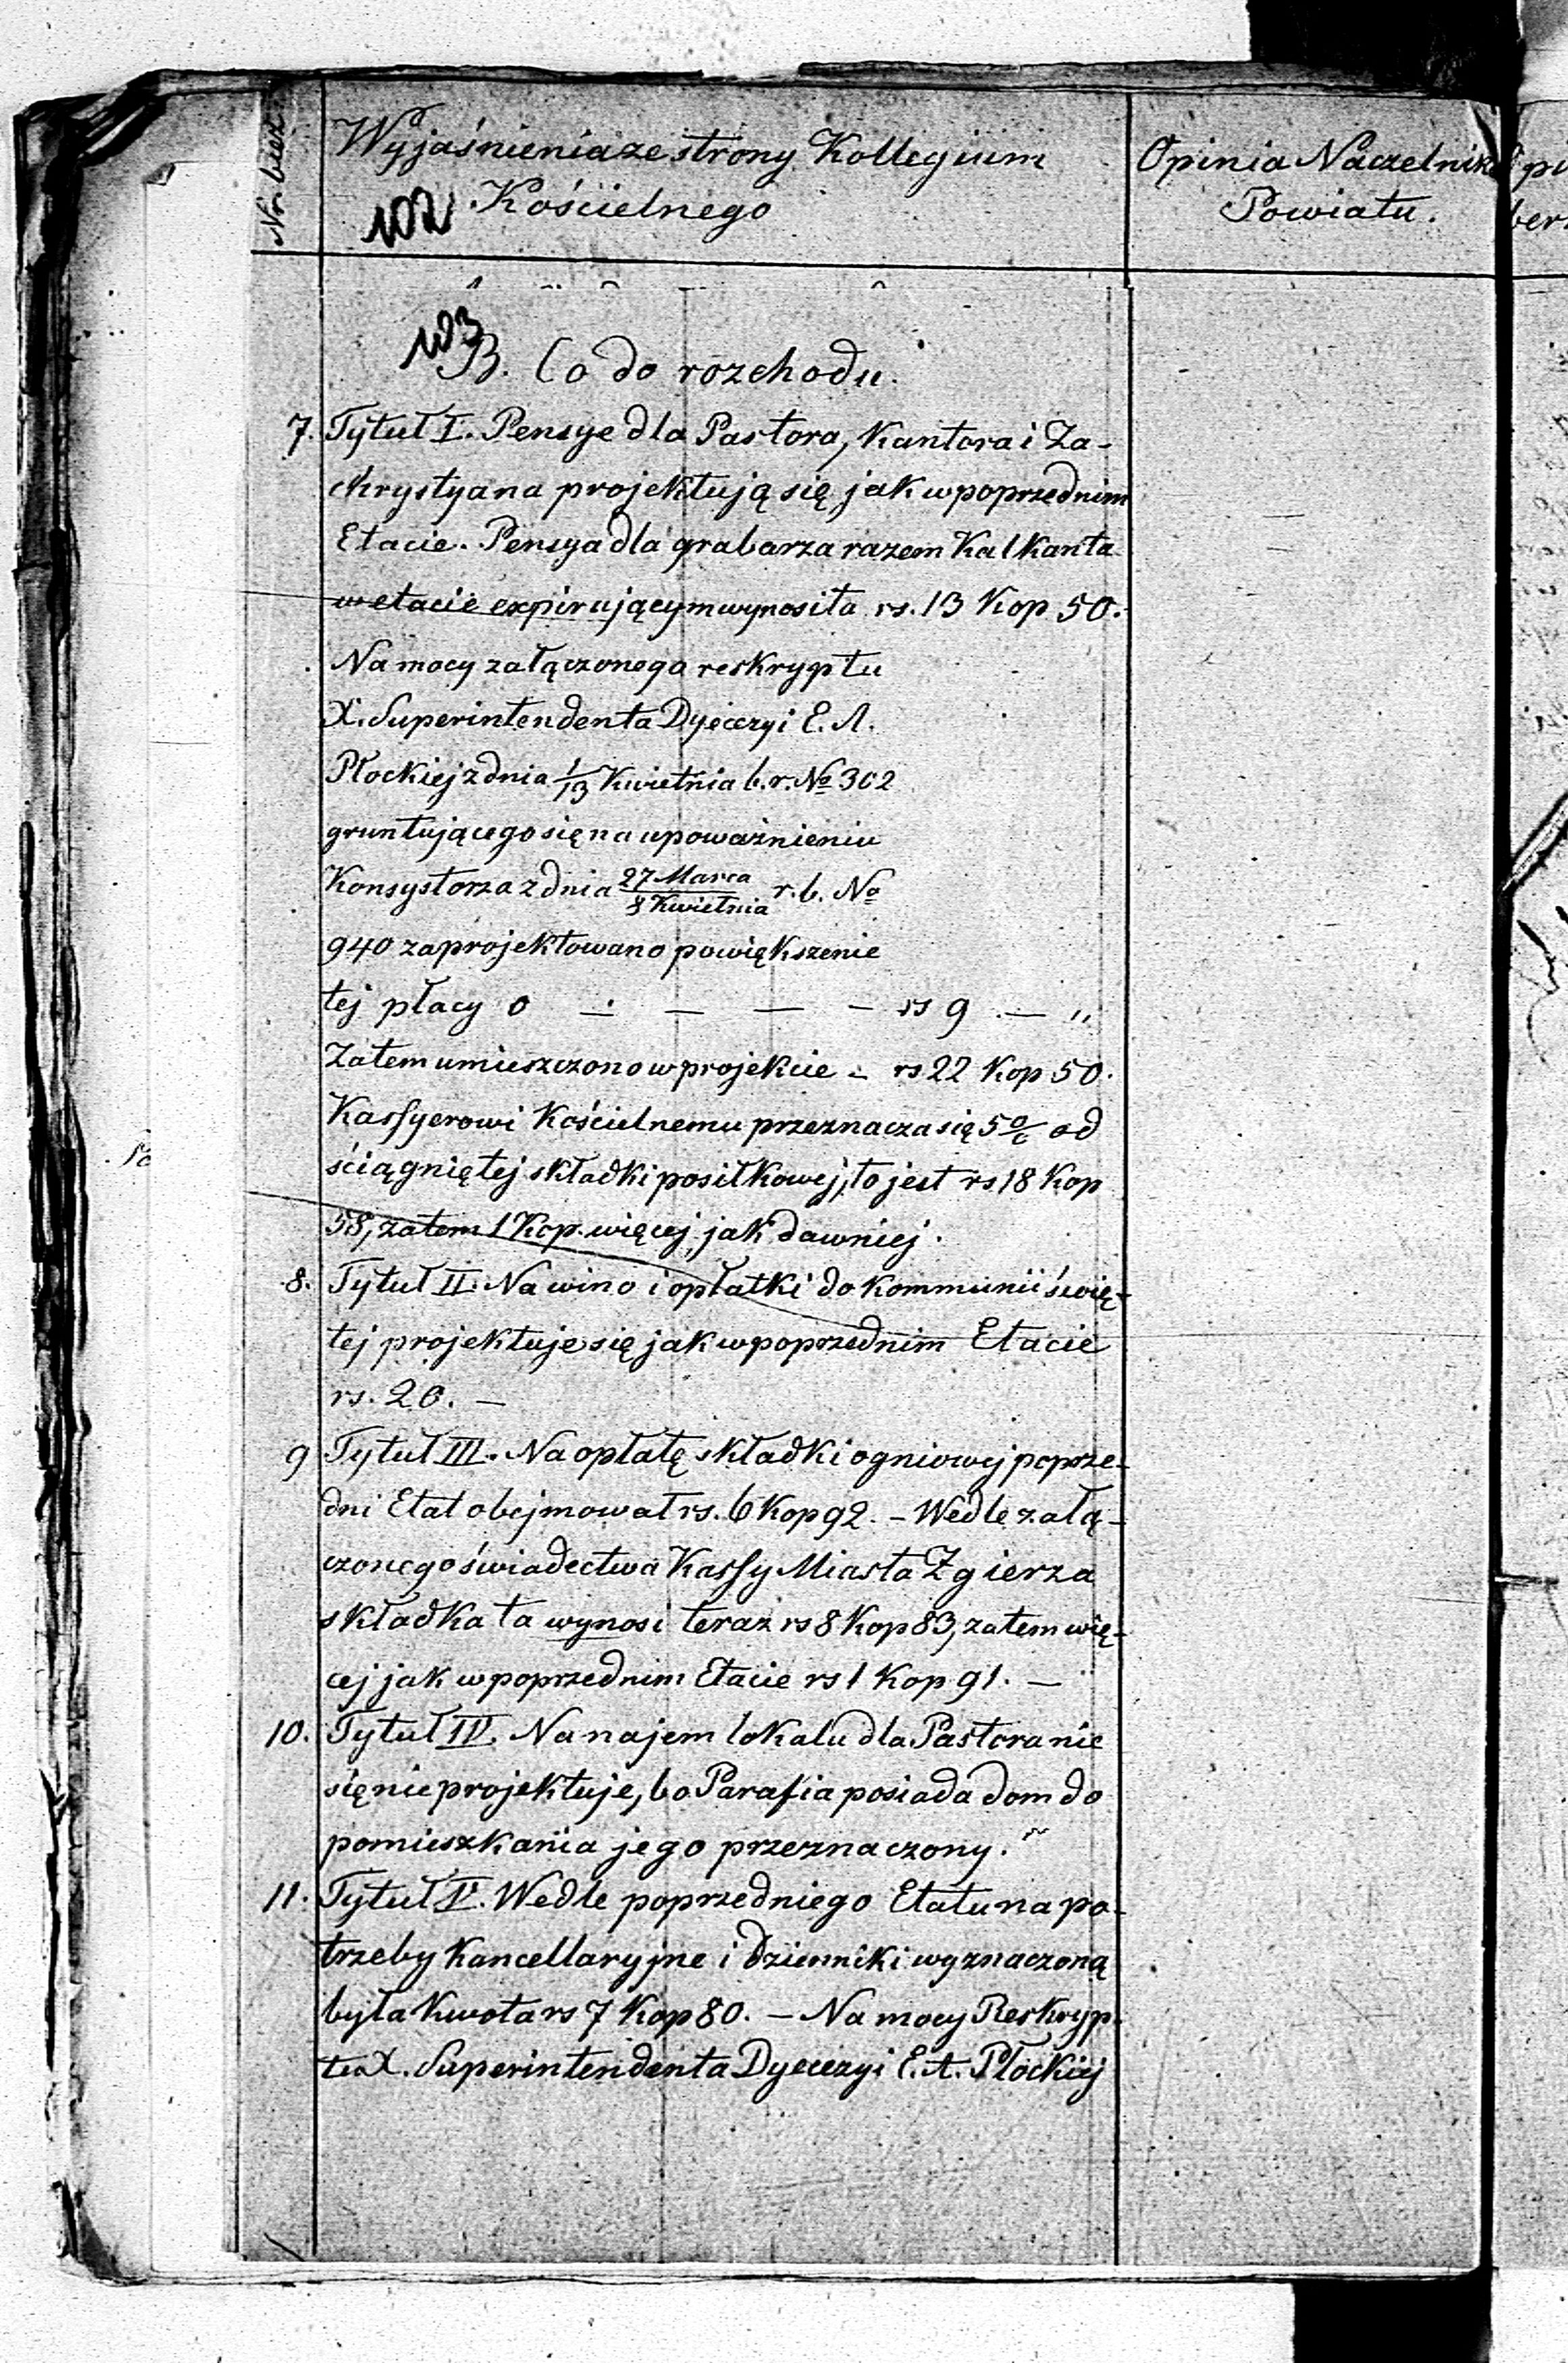 Nr. bież.
Wyjaśnienia ze strony Kollegium
Kościelnego
102
Opinia Naczelnika
Powiatu.
103
B. Co do rozchodu.
7. Tytuł I. Pensye dla Pastora, Kantora i Za-
chrystyana projektują się, jak w poprzednim
Etacie. Pensya dla grabarza razem Kalkanta
w etacie expirującym wynosiła rs. 13 Kop 50.
Na mocy załączonego reskryptu
X. Superintendenta Dyecezyi E. A.
Płockiej z dnia 1/13 Kwietnia b. r. No 302
gruntującego się na upoważnieniu
Konsystorza z dnia 27 Marca/8 Kwietnia r. b. No
940 zaprojektowano powiększenie
tej płacy o — — — — rs 9 — „
Zatem umieszczono w projekcie – rs 22 Kop 50.
Kassyerowi Kościelnemu przeznacza się 5% od
ściągniętej składki posiłkowej, to jest rs 18 Kop
58, zatem 1 Kop. więcej, jak dawniej.
8. Tytuł II. Na wino i opłatki do Kommunii świę-
tej projektuje się jak w poprzednim Etacie
rs. 20. —
9 Tytuł III. Na opłatę składki ogniowej poprze-
dni Etat obejmował rs. 6 Kop 92. – Wedle załą-
czonego świadectwa Kassy Miasta Zgierza
składka ta wynosi teraz rs 8 Kop 83, zatem wię-
cej jak w poprzednim Etacie rs 1 Kop 91. —
10. Tytuł IV. Na najem lokalu dla Pastora nic
się nie projektuje, bo Parafia posiada dom do
pomieszkania jego przeznaczony.
11. Tytuł V. Wedle poprzedniego Etatu na po-
trzeby Kancellaryjne i dzienniki wyznaczoną
była Kwota rs 7 Kop 80. – Na mocy Reskryp-
tu X. Superintendenta Dyecezyi E. A. Płockiej